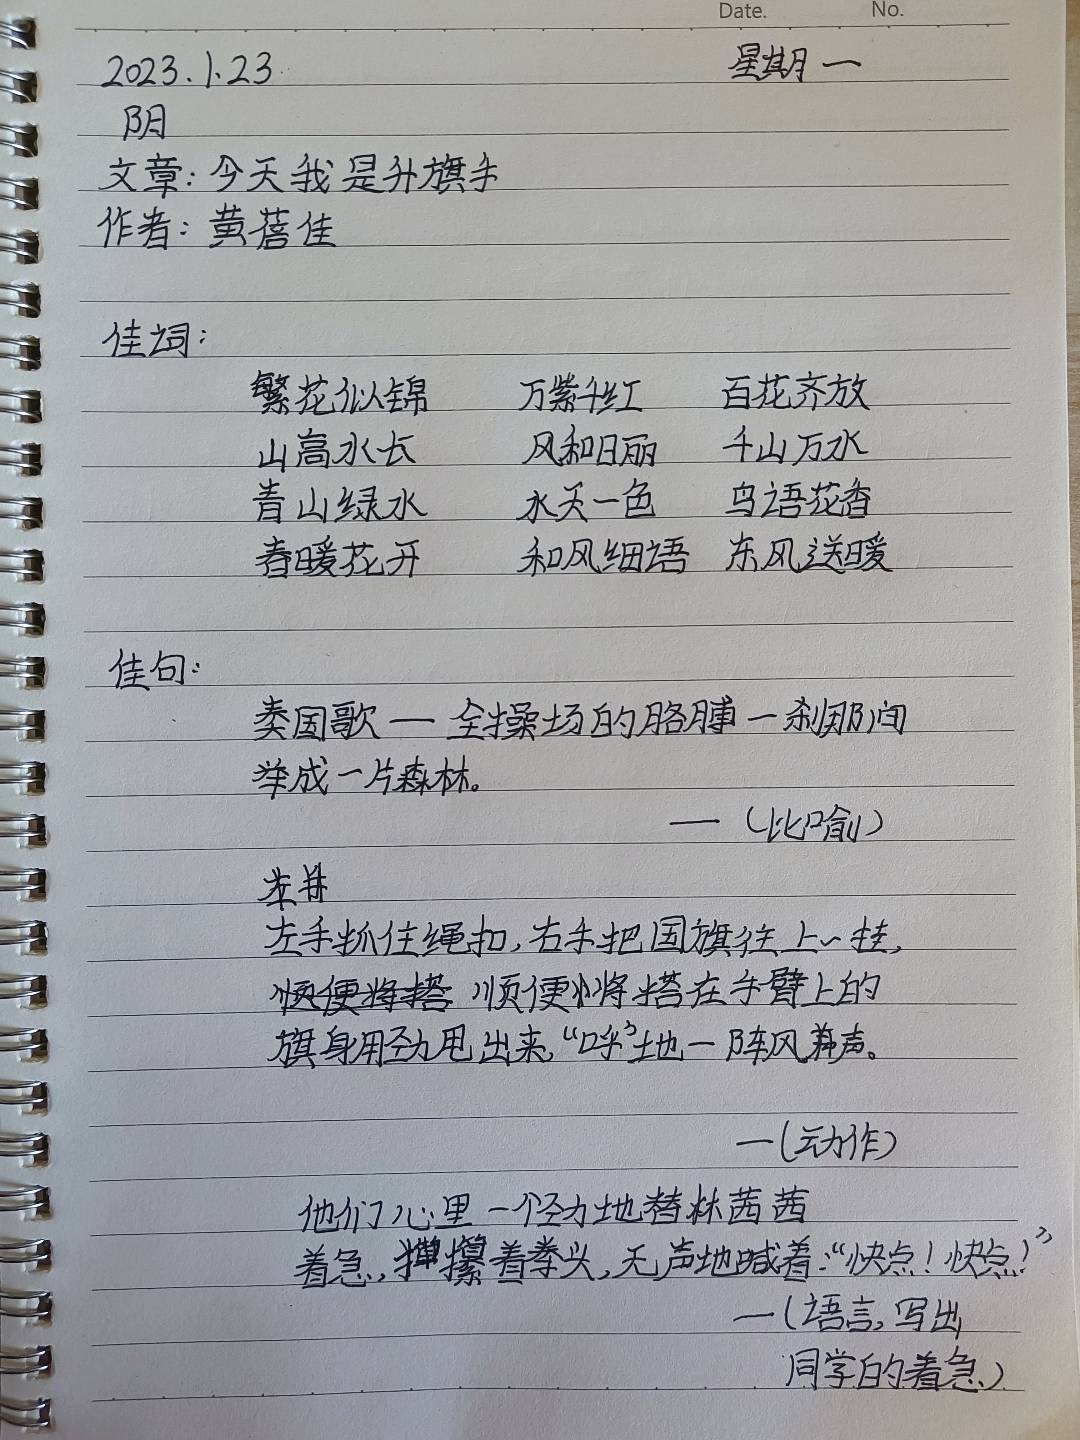 Date. No.
2023.1.23 星期一
阴
文章:今天我是升旗手
作者:黄蓓佳
佳词:
繁花似锦 万紫千红 百花齐放
山高水长 风和日丽 千山万水
青山绿水 水天一色 鸟语花香
春暖花开 和风细语 东风送暖
佳句:
奏国歌一全操场的胳膊一刹那间
举成一片森林。
—(比喻)
左手抓住绳扣,右手把国旗往上一挂,
顺便将搭在手臂上的
旗身用劲甩出来,“呼”地一阵风声。
—(动作)
他们心里一个劲地替林茜茜
着急,攥着拳头,无声地喊着:“快点!快点!”
—(语言,写出
同学的着急)